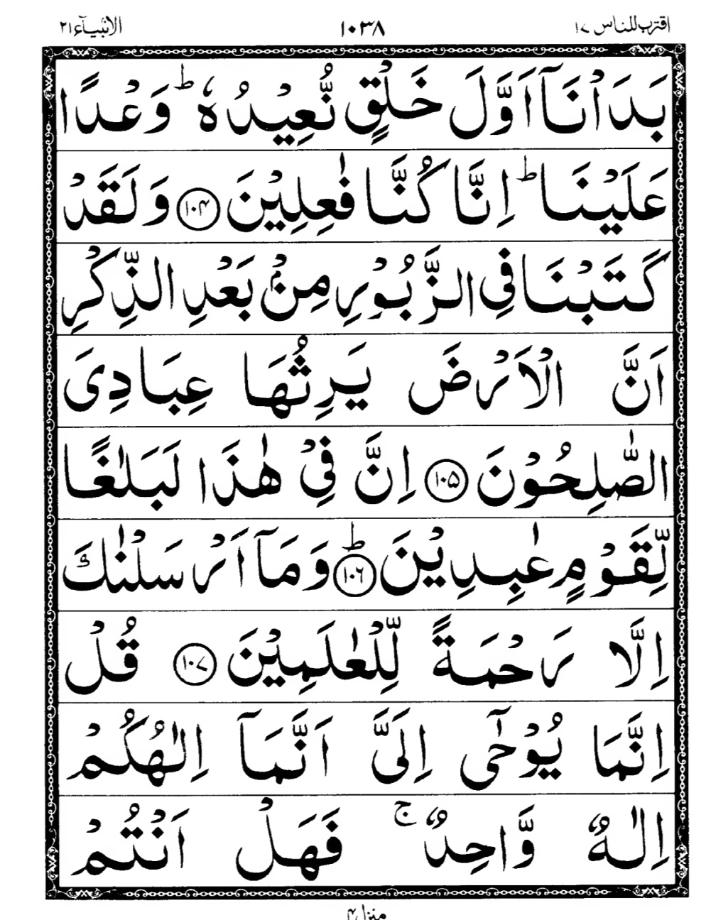 اقترب للناس ۱۷ ۱۰۳۸ الانبیآء ۲۱
بَدَاۡنَاۤ اَوَّلَ خَلۡقٍ نُّعِيۡدُهٗ ؕ وَعۡدًا
عَلَيۡنَا ؕ اِنَّا كُنَّا فٰعِلِيۡنَ ﴿۱۰۴﴾ وَلَقَدۡ
كَتَبۡنَا فِى الزَّبُوۡرِ مِنۡۢ بَعۡدِ الذِّكۡرِ
اَنَّ الۡاَرۡضَ يَرِثُهَا عِبَادِىَ
الصّٰلِحُوۡنَ ﴿۱۰۵﴾ اِنَّ فِىۡ هٰذَا لَبَلٰغًا
لِّقَوۡمٍ عٰبِدِيۡنَ ؕ ﴿۱۰۶﴾ وَمَاۤ اَرۡسَلۡنٰكَ
اِلَّا رَحۡمَةً لِّلۡعٰلَمِيۡنَ ﴿۱۰۷﴾ قُلۡ
اِنَّمَا يُوۡحٰٓى اِلَىَّ اَنَّمَاۤ اِلٰهُكُمۡ
اِلٰهٌ وَّاحِدٌ ۚ فَهَلۡ اَنۡتُمۡ
منزل ۴